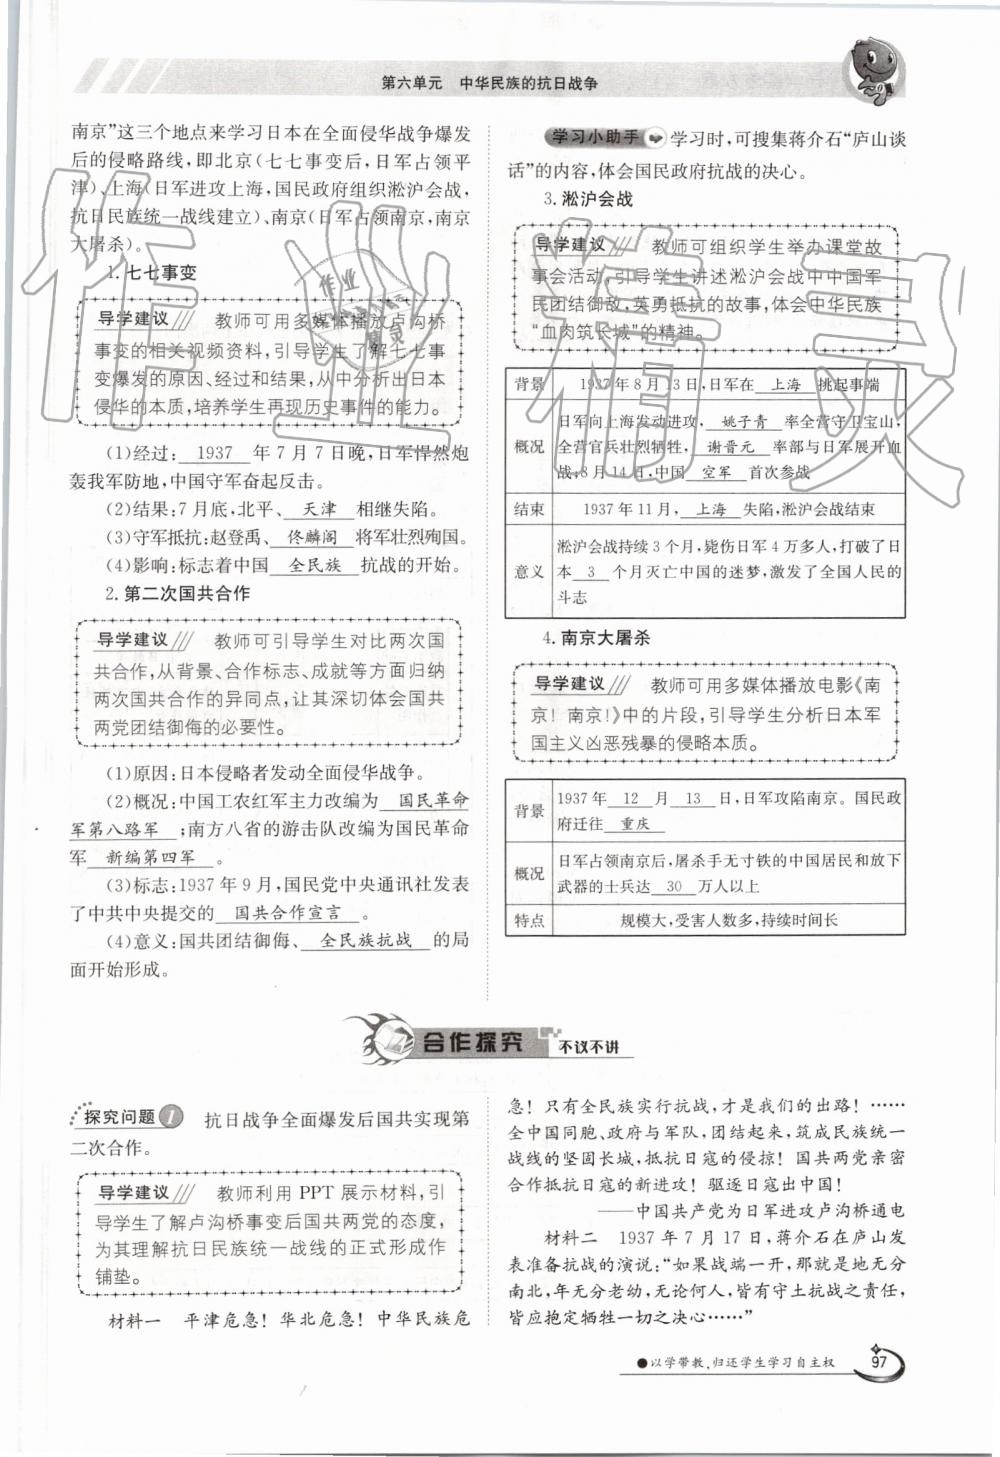 第六单元 中华民族的抗日战争
南京”这三个地点来学习日本在全面侵华战争爆发
后的侵略路线,即北京(七七事变后,日军占领平
津)、上海(日军进攻上海,国民政府组织淞沪会战,
抗日民族统一战线建立)、南京(日军占领南京,南京
大屠杀)。
1.七七事变
导学建议 教师可用多媒体播放卢沟桥
事变的相关视频资料,引导学生了解七七事
变爆发的原因、经过和结果,从中分析出日本
侵华的本质,培养学生再现历史事件的能力。
(1)经过: 1937 年 7 月 7 日晚,日军悍然炮
轰我军防地,中国守军奋起反击。
(2)结果:7 月底,北平、 天津 相继失陷。
(3)守军抵抗:赵登禹、 佟麟阁 将军壮烈殉国。
(4)影响:标志着中国 全民族 抗战的开始。
2.第二次国共合作
导学建议 教师可引导学生对比两次国
共合作,从背景、合作标志、成就等方面归纳
两次国共合作的异同点,让其深切体会国共
两党团结御侮的必要性。
(1)原因:日本侵略者发动全面侵华战争。
(2)概况:中国工农红军主力改编为 国民革命
军第八路军 ;南方八省的游击队改编为国民革命
军 新编第四军 。
(3)标志:1937 年 9 月,国民党中央通讯社发表
了中共中央提交的 国共合作宣言 。
(4)意义:国共团结御侮、 全民族抗战 的局
面开始形成。
学习小助手 学习时,可搜集蒋介石“庐山谈
话”的内容,体会国民政府抗战的决心。
3.淞沪会战
导学建议 教师可组织学生举办课堂故
事会活动,引导学生讲述淞沪会战中中国军
民团结御敌,英勇抵抗的故事,体会中华民族
“血肉筑长城”的精神。
背景 1937 年 8 月 13 日,日军在 上海 挑起事端
概况 日军向上海发动进攻, 姚子青 率全营守卫宝山,
全营官兵壮烈牺牲, 谢晋元 率部与日军展开血
战;8 月 14 日,中国 空军 首次参战
结束 1937 年 11 月, 上海 失陷,淞沪会战结束
意义 淞沪会战持续 3 个月,毙伤日军 4 万多人,打破了日
本 3 个月灭亡中国的迷梦,激发了全国人民的
斗志
4.南京大屠杀
导学建议 教师可用多媒体播放电影《南
京! 南京!》中的片段,引导学生分析日本军
国主义凶恶残暴的侵略本质。
背景 1937 年 12 月 13 日,日军攻陷南京。国民政
府迁往 重庆
概况 日军占领南京后,屠杀手无寸铁的中国居民和放下
武器的士兵达 30 万人以上
特点 规模大,受害人数多,持续时间长
合作探究 不议不讲
探究问题 1 抗日战争全面爆发后国共实现第
二次合作。
导学建议 教师利用 PPT 展示材料,引
导学生了解卢沟桥事变后国共两党的态度,
为其理解抗日民族统一战线的正式形成作
铺垫。
材料一 平津危急! 华北危急! 中华民族危
急! 只有全民族实行抗战,才是我们的出路! ……
全中国同胞、政府与军队,团结起来,筑成民族统一
战线的坚固长城,抵抗日寇的侵掠! 国共两党亲密
合作抵抗日寇的新进攻! 驱逐日寇出中国!
——中国共产党为日军进攻卢沟桥通电
材料二 1937 年 7 月 17 日,蒋介石在庐山发
表准备抗战的演说:“如果战端一开,那就是地无分
南北,年无分老幼,无论何人,皆有守土抗战之责任,
皆应抱定牺牲一切之决心……”
●以学带教,归还学生学习自主权 97
作业精灵
作业精灵